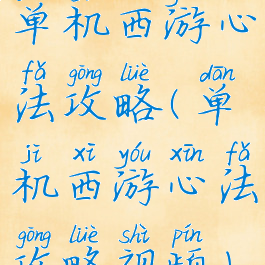 单机西游心
fǎ gōng lüè dān
法攻略(单
jī xī yóu xīn fǎ
机西游心法
gōng lüè shì pín
攻略视频)